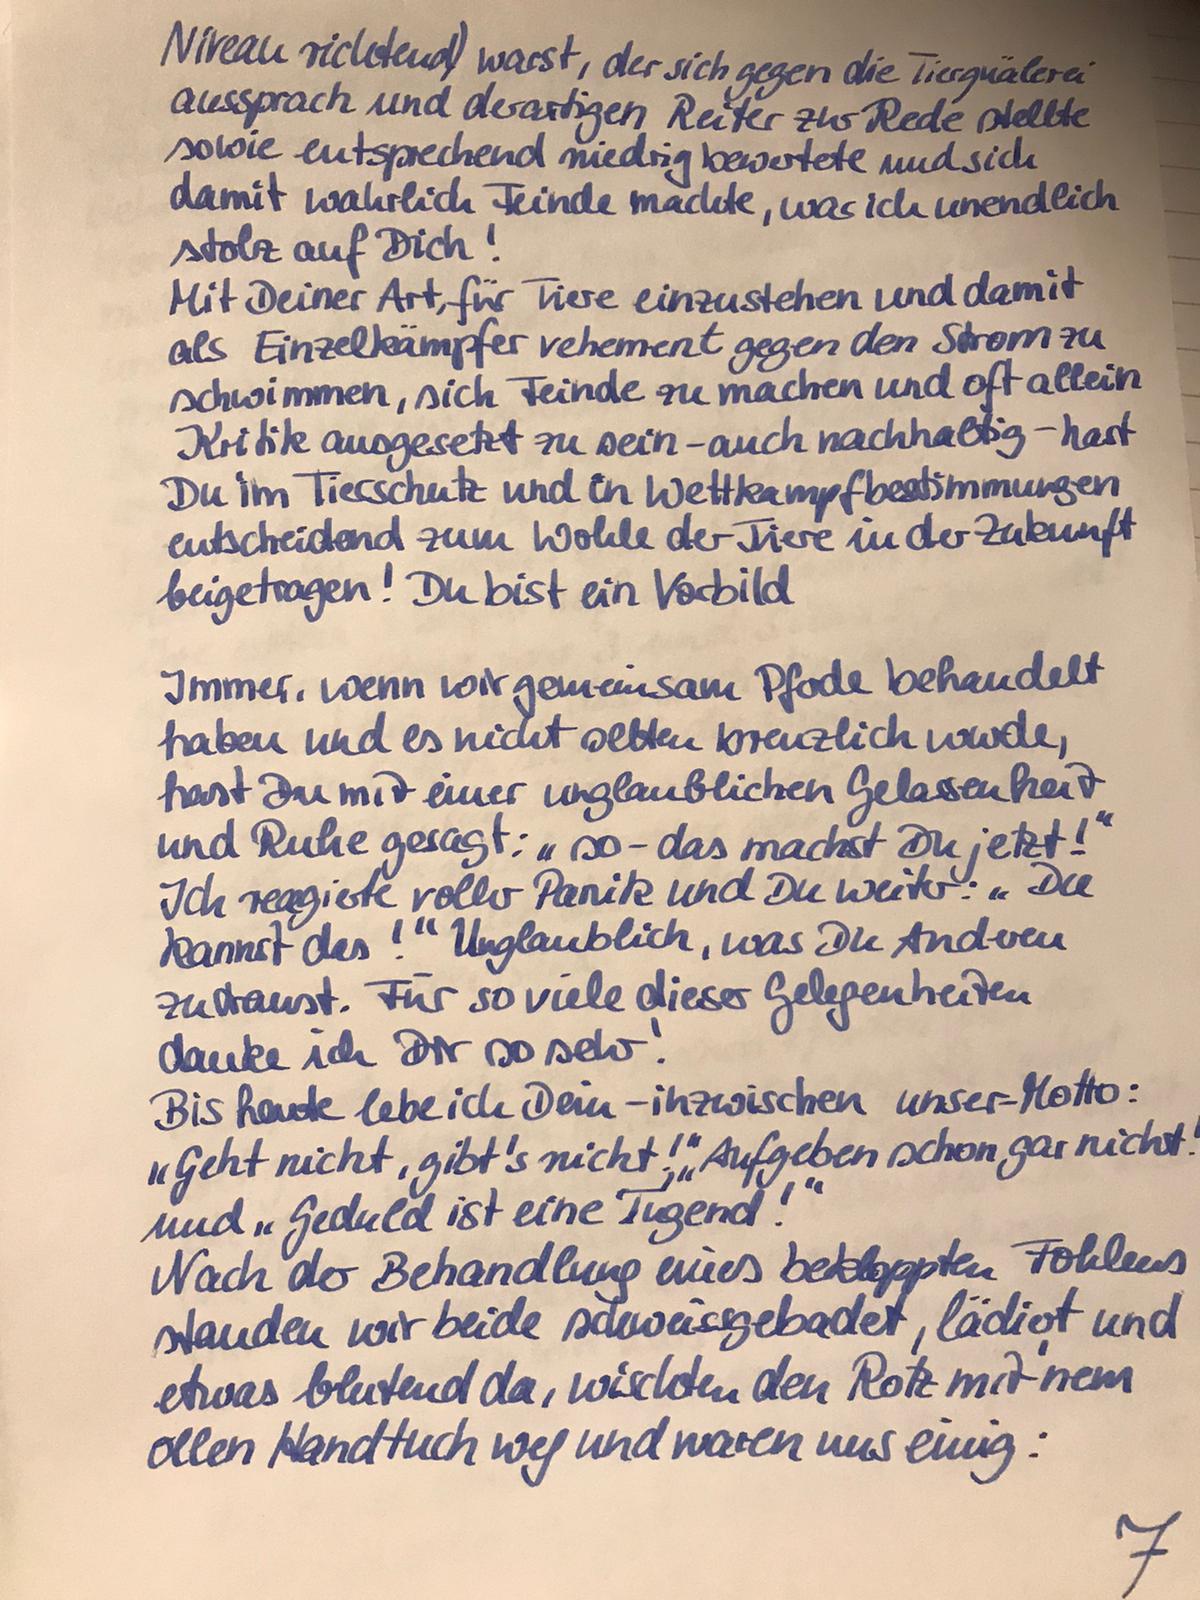 Niveau richtend) warst, der sich gegen die Tierquälerei
aussprach und derartigen Reiter zur Rede stellte
sowie entsprechend niedrig bewertete und sich
damit wahrlich Feinde machte, was ich unendlich
stolz auf Dich!
Mit Deiner Art, für Tiere einzustehen und damit
als Einzelkämpfer vehement gegen den Strom zu
schwimmen, sich Feinde zu machen und oft allein
Kritik ausgesetzt zu sein - auch nachhaltig - hast
Du im Tierschutz und in Wettkampfbestimmungen
entscheidend zum Wohle der Tiere in der Zukunft
beigetragen! Du bist ein Vorbild
Immer, wenn wir gemeinsam Pferde behandelt
haben und es nicht selten brenzlich wurde,
hast Du mit einer unglaublichen Gelassenheit
und Ruhe gesagt: „so - das machst Du jetzt!“
Ich reagierte voller Panik und Du weiter: „Du
kannst das!“ Unglaublich, was Du Anderen
zutraust. Für so viele dieser Gelegenheiten
danke ich Dir so sehr!
Bis heute lebe ich Dein - inzwischen unser - Motto:
„Geht nicht, gibt's nicht!“, „Aufgeben schon gar nicht!
und „Geduld ist eine Tugend!“
Nach der Behandlung eines bekloppten Fohlens
standen wir beide schweissgebadet, lädiert und
etwas blutend da, wischten den Rotz mit 'nem
ollen Handtuch weg und waren uns einig:
7